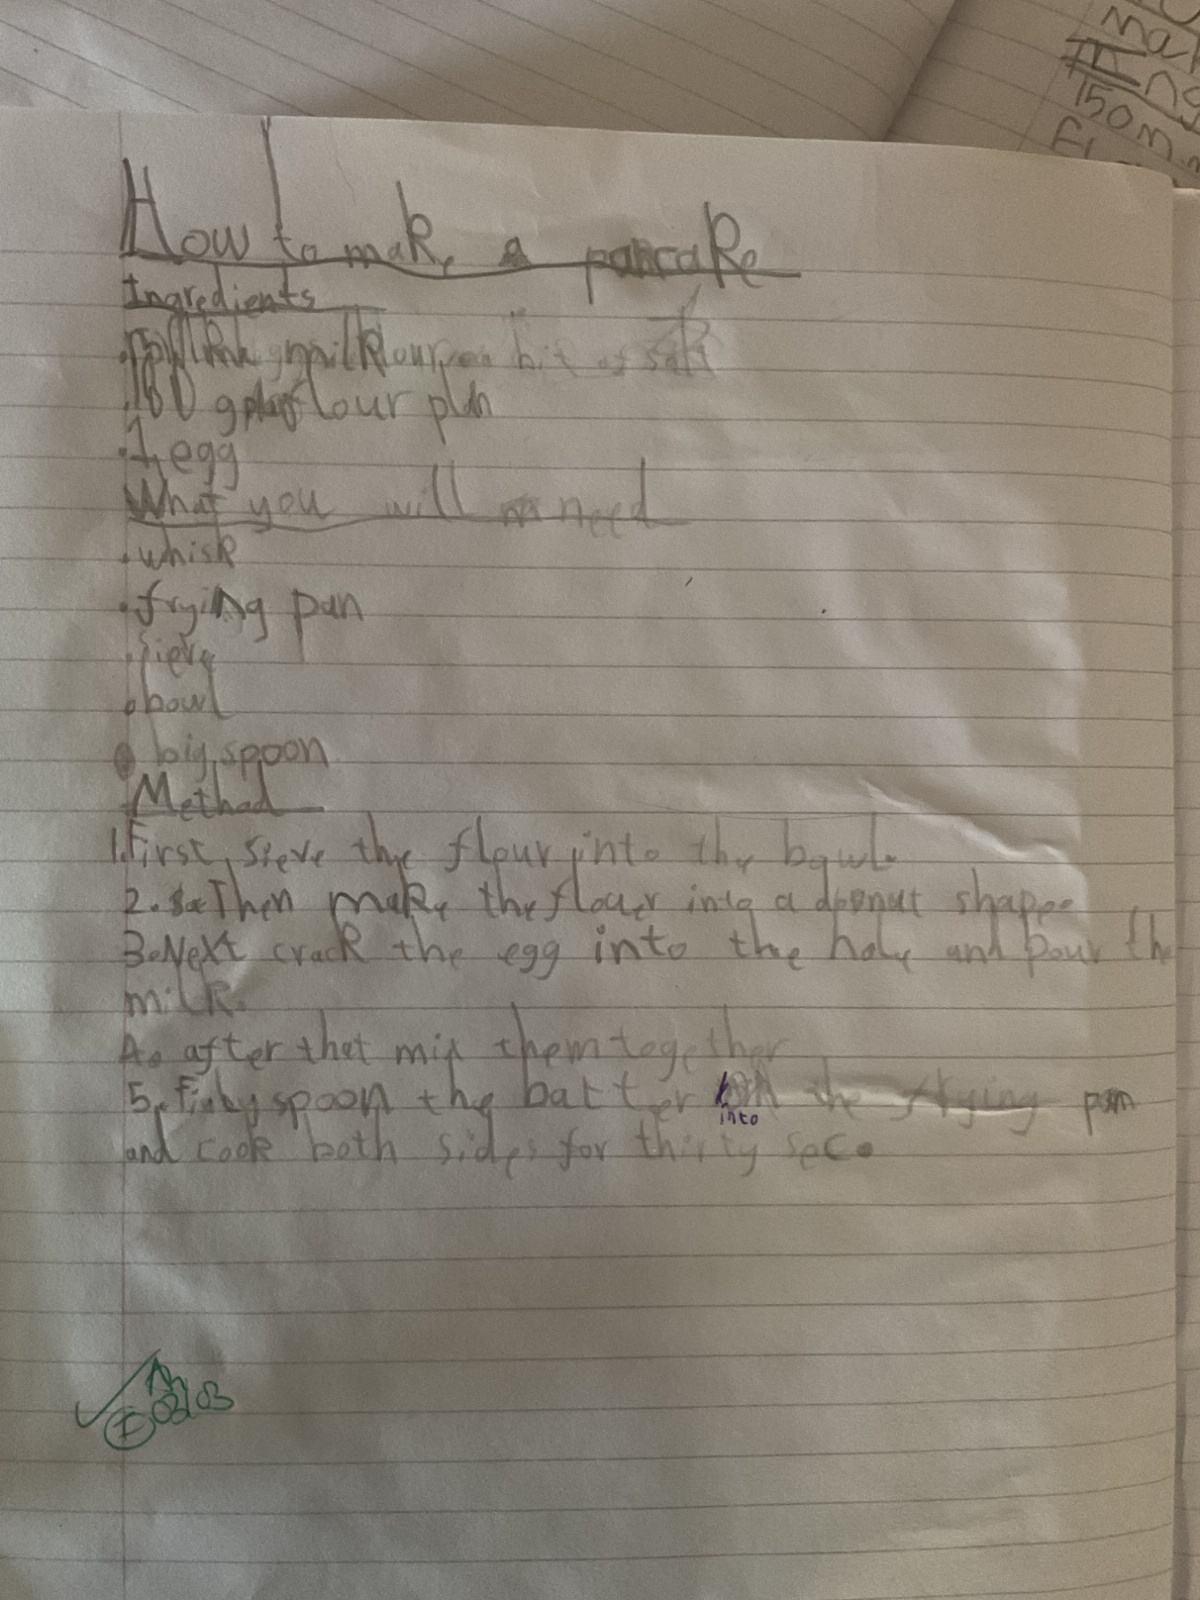 mak
Ing
150m
Fl
How to make a pancake
Ingredients
milk a bit of salt
flour plan
1 egg
What you will need
• whisk
• frying pan
• sieve
• bowl
• big spoon
Method
1. First, sieve the flour into the bowl.
2. Then make the flouer into a doonut shape.
3. Next crack the egg into the hole and pour the
milk.
4. after that mix them together
5. spoon the batter into the frying pan
and cook both sides for thirty sec.
03/03